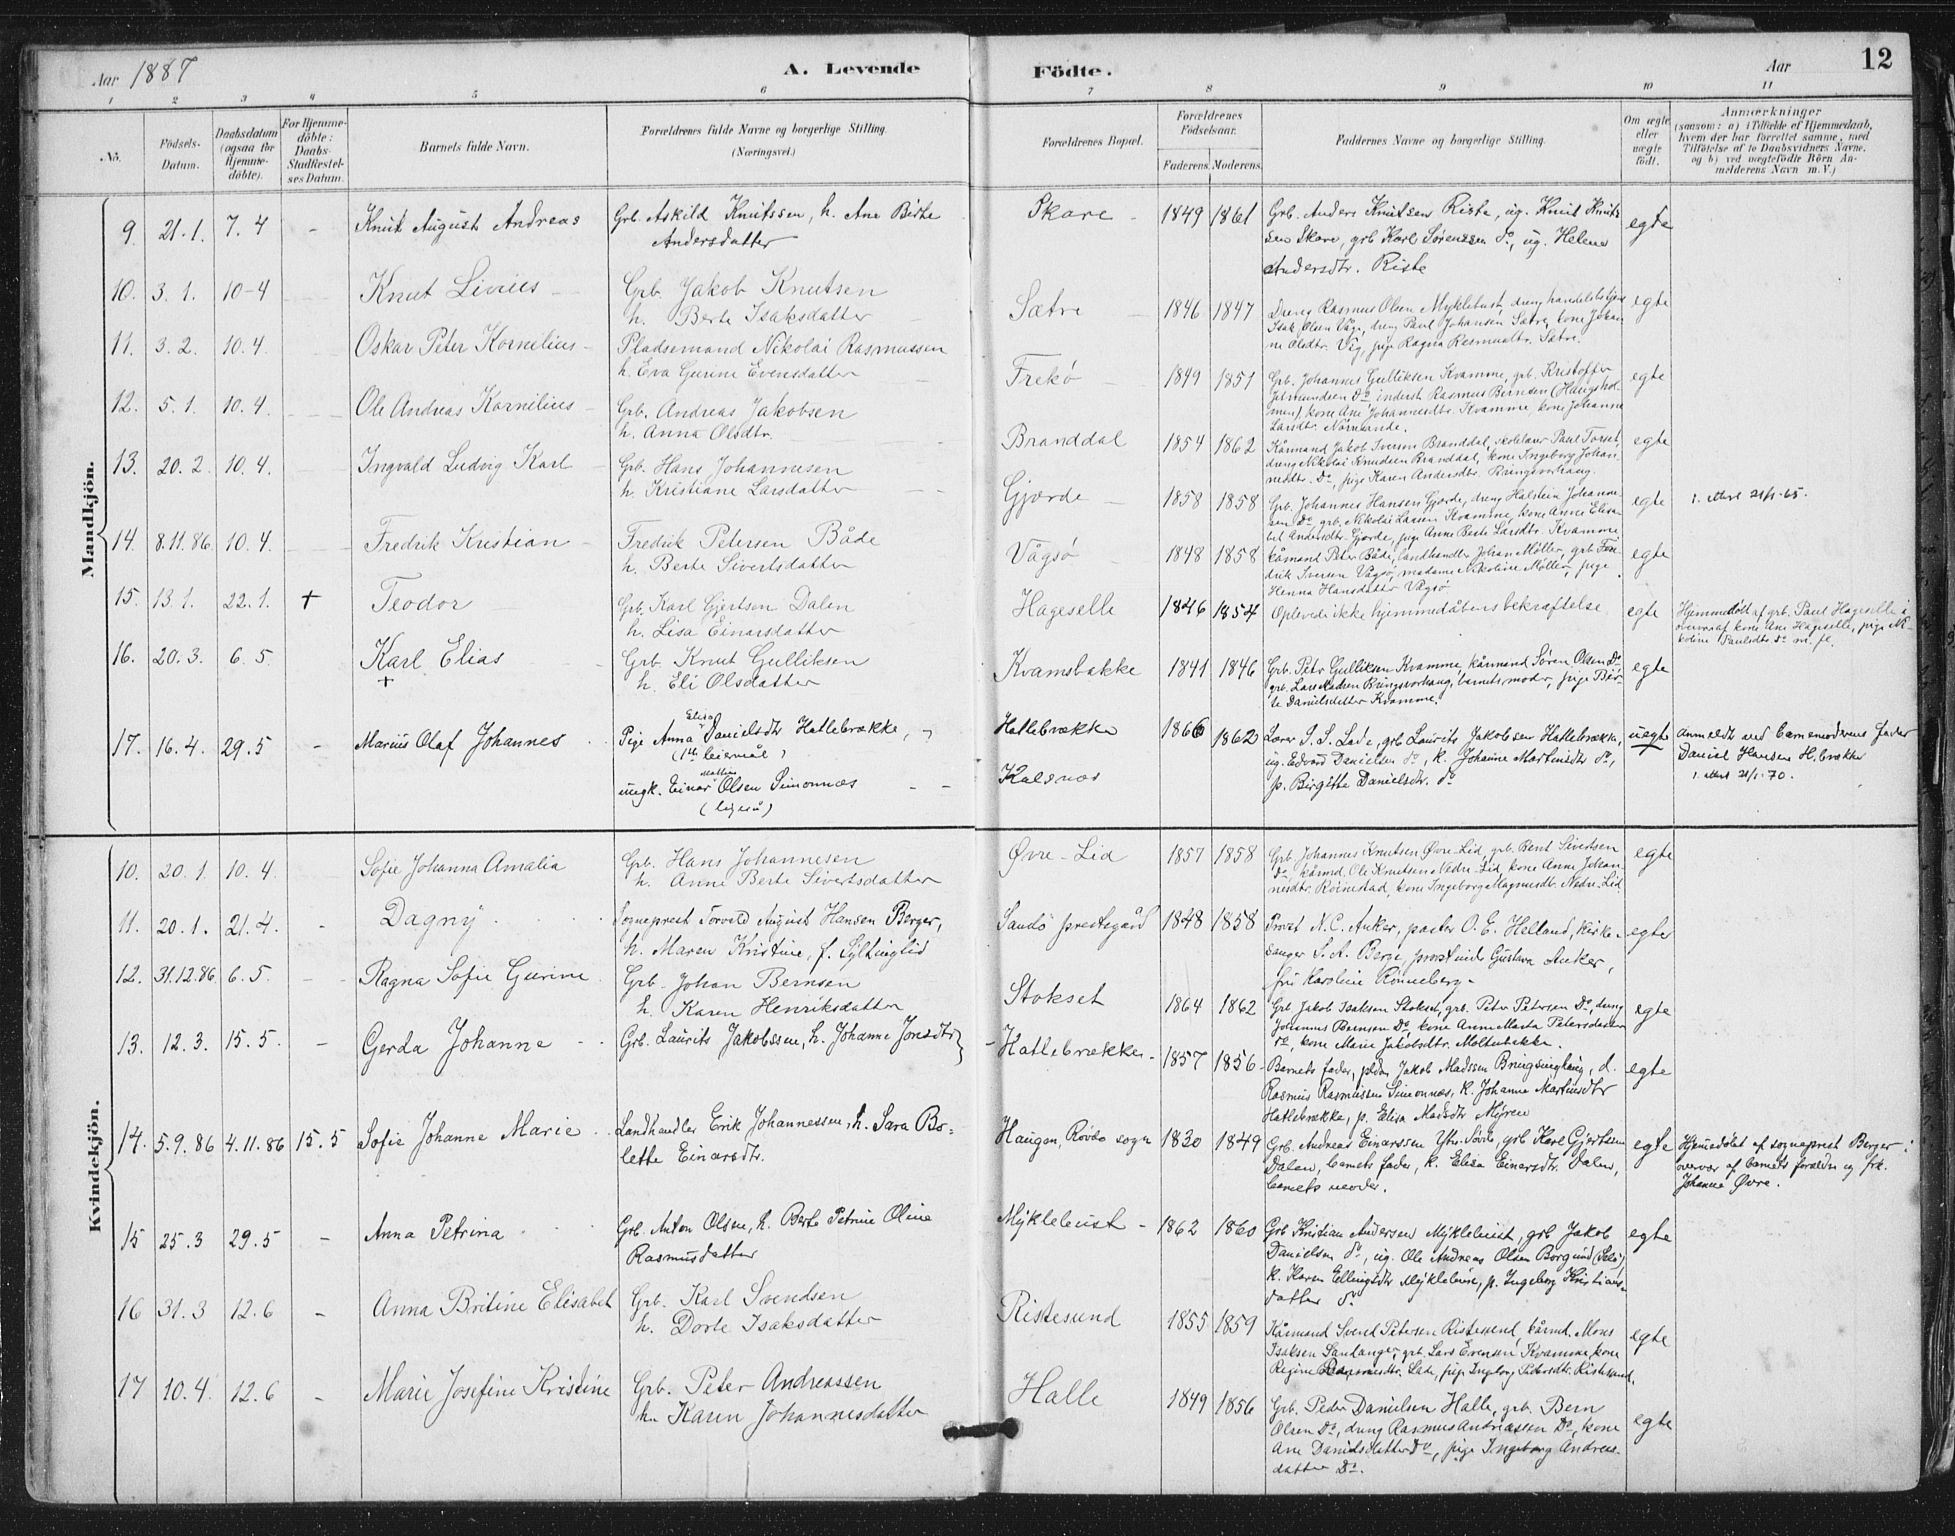 Aar 1887
A. Levende
Födte.
Aar
12
1 2 3 4 5 6 7 8 9 10 11
No.
Födsels-Datum.
Daabsdatum (ogsaa for Hjemmedöbte).
For Hjemmedöbte: Daabs-Stadfæstelses Datum.
Barnets fulde Navn.
Forældrenes fulde Navne og borgerlige Stilling. (Næringsvei.)
Forældrenes Bopæl.
Forældrenes Födselsaar.
Faderens. Moderens.
Faddernes Navne og borgerlige Stilling.
Om ægte eller uægte födt.
Anmærkninger
(saasom: a) i Tilfælde af Hjemmedaab,
hvem der har forrettet samme, med
Tilföielse af to Daabsvidners Navne,
og b) ved uægtefödte Börn Anmelderens Navn m. V.)
Mandkjön.
9. 21.1. 7.4 - Knut August Andreas Grb. Askild Knutssen, h. Ane Birte Andersdatter Skare 1849 1861 Grb. Anders Knutsen Riste, ug. Knut Knutssen Skare, grb Karl Sørenssen do, ug. Helene Andersdtr. Riste egte
10. 3.1. 10-4 Knut Livius Grb. Jakob Knutsen h. Berte Isaksdatter Sætre 1846 1847 Dreng Rasmus Olsen Myklebust, dreng Isak Olsen Våge, dreng Paul Johansen Sætre, kone Olsdtr. Vig, pige Ragna Rasmusdtr. Sætre. egte
11. 3.2. 10.4. Oskar Peter Kornelius Pladsemand Nikolai Rasmussen h. Eva Gurine Evensdatter Frekø 1849 1851 Grb. Johannes Gulliksen Kvamme, grb. Kristoffer Do, inderst Rasmus Bernsen kone Ane Johannesdtr. Kvamme, kone Johanne Larsdtr. egte
12. 5.1. 10.4. Ole Andreas Kornelius Grb. Andreas Jakobsen h. Anna Olsdtr. Branddal 1854 1862 Kårmand Jakob Iversen Branddal, Paul Torset, dreng Nikolai Knudsen Branddal, kone Ingeborg Johannesdtr. Do, pige Karen Andersdtr. egte
13. 20.2. 10.4. Ingvald Ludvig Karl Grb. Hans Johannesen h. Kristiane Larsdatter Gjærde 1858 1858 Grb. Johannes Hansen Gjærde, dreng Halstein Johannesen Do, grb. Nikolai Larsen Kvamme, kone Anne Elisabet Andersdtr. Gjærde, pige Anne Berte Larsdtr. Kvamme egte 1. Attest 21/1-65.
14. 8.11.86. 10.4. Fredrik Kristian Fredrik Petersen Både h. Berte Sivertsdatter Vågsø 1848 1858 kårmand Peter Både, landhandler Johan Møller, grb. Iversen Vågsø, madame Nikoline Møller, pige Hansdatter Vågsø egte
15. 13.1. 22.1. + Teodor Grb. Karl Gjertsen Dalen h. Lisa Einarsdatter Hageselle 1846 1854 Oplevde ikke hjemmedåbens bekræftelse egte Hjemmedøbt af grb. Paul Hageselle i overvær af kone Ane Hageselle, pige Nikoline Paulsdtr. do m. fl.
16. 20.3. 6.5. Karl Elias + Grb. Knut Gulliksen h. Eli Olsdatter Kvamsbakke 1841 1846 Grb. Petr Gulliksen Kvamme, kårmand Søren Olsen Do, grb. Lars barnets moder, pige Berte Danielsdatter Kvamme. egte
17. 16.4. 29.5 - Marius Olaf Johannes Pige Anna Elisa Danielsdtr Hatlebrække, (1ste leiermål) ungk. Einar Olsen Simonnæs (ligeså) Hatlebrække Kalsnæs 1866 1862 Lærer S. S. Lade, grb Laurits Jakobsen Hatlebrække, ug. Edvard Danielsen do, k. Johanne Martinsdtr do, p. Birgitte Danielsdtr. do uegte Anmeldt ved barnemoderens fader Daniel Hansen H.brække 1. Attest 21/1-70.
Kvindekjön.
10. 20.1. 10.4. Sofie Johanna Amalia Grb. Hans Johannesen h. Anne Berte Sivertsdatter Øvre-Lid 1857 1858 Grb. Johannes Knutsen Øvre-Lid, grb. Bent Sivertsen Do, kårmd. Ole Knutsen Nedre-Lid, kone Anne Johannesdtr. Roimestad, kone Ingeborg Magnusdtr. Nedre-Lid egte
11. 20.1. 21.4. - Dagny Sogneprest Torvald August Hansen Berger, h. Maren Kristine, f. Syltinglid Sandø prestegård 1848 1858 Provst N. C. Anker, pastor O. E. Helland, kirkesanger S. A. Berge, provstinde Gustava Anker, frk Karoline Rønneberg. egte
12. 31.12.86 6.5. - Ragna Sofie Gurine Grb. Johan Bernsen h. Karen Henriksdatter Stokset 1864 1862 Grb Jakob Isaksen Stokset, grb. Peter Petersen Do, dreng Johannes Bernsen Do, kone Anne Marta Petersdatter Do, kone Marie Jakobsdtr. Moltubakke. egte
13. 12.3. 15.5. - Gerda Johanne Grb. Laurits Jakobssen, h. Johanne Jonsdtr Hatlebrække 1857 1856 Barnets fader, Jakob Madssen Bringsinghaug, d. Rasmus Rasmussen Simonnæs, k. Johanne Martinsdtr Hatlebrække, p. Elisa Madsdtr Myren egte
14. 5.9.86 4.11.86 15.5 Sofie Johanne Marie Landhandler Erik Johannessen, h. Sara Bolette Einarsdtr. Haugen, Rovde sogn 1830 1849 Grb. Andreas Einarssen Ytre Søvde, grb Karl Gjertssen Dalen, barnets fader, k. Elisa Einarsdtr. Dalen, barnets moder. egte Hjemmedøbt af sogneprest Berger i overvær af barnets foreldre og frk. Johanne Øvre.
15 25.3 29.5 - Anna Petrina Grb. Anton Olsen, h. Berte Petrine Oline Rasmusdatter Myklebust 1862 1860 Grb Kristian Andersen Myklebust, grb Jakob Danielsen do, ug. Ole Andreas Olsen Borgund, k. Karen Ellingsdtr Myklebust, p. Ingeborg Kristiansdatter do egte
16 31.3 12.6 - Anna Britine Elisabet Grb. Karl Svendsen h. Dorte Isaksdatter Ristesund 1855 1859 Kårmand Svend Petersen Ristesund, kårmd. Mons Isaksen Sandanger, grb. Lars Evensen Kvamme, kone Regine Rasmusdtr. Lade, pige Ingeborg Petersdtr. Ristesund. egte
17 10.4. 12.6 - Marie Josefine Kristine Grb. Peter Andreassen h. Karen Johannesdatter Halle 1849 1856 Grb. Peder Danielsen Halle, grb. Bern Olsen Do, dreng Rasmus Andreasen Do, kone Ane Danielsdatter Do, pige Ingeborg Andreasdatter Do. egte